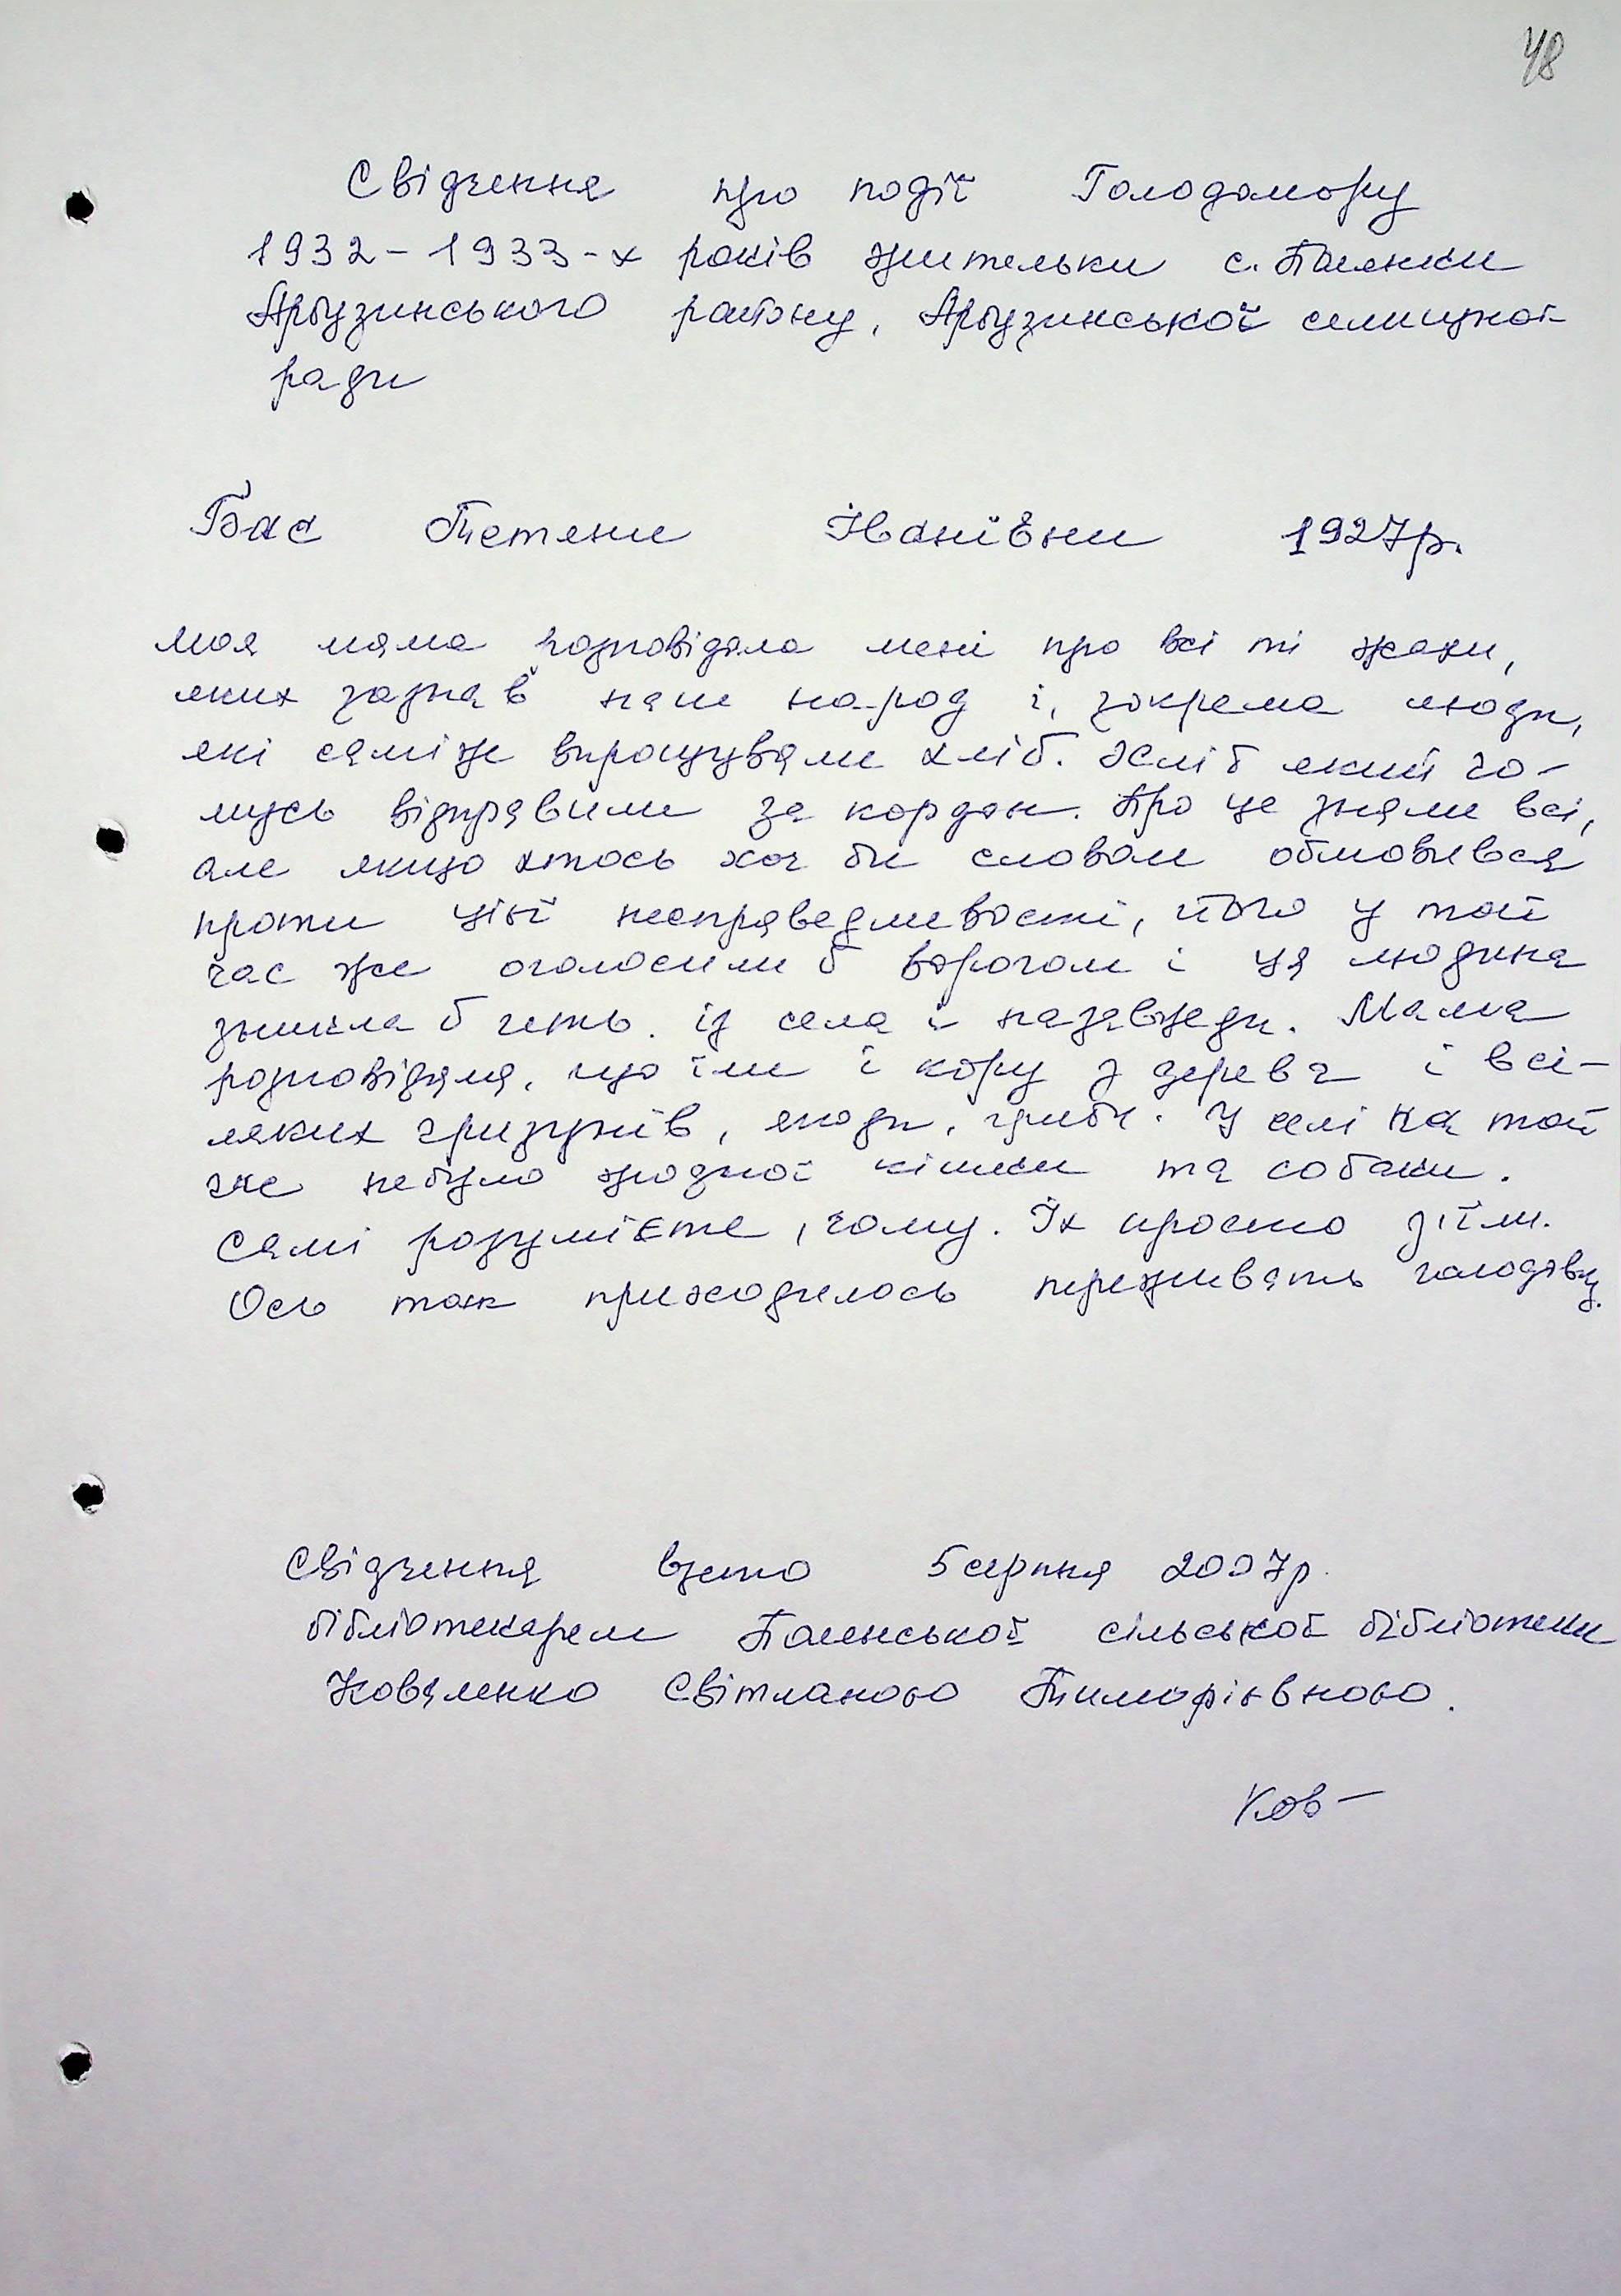 48
Свідчення про події Голодомору
1932-1933-х років жительки с. Паленки
Арбузинського району, Арбузинської селищної
ради
Бас Тетяни Іванівни 1927р.
Моя мама розповідала мені про всі ті жахи,
яких зазнав наш народ і, зокрема люди,
які самі же вирощували хліб. Хліб який чо-
мусь відправили за кордон. Про це знали всі,
але якщо хтось хоч би словом обмовився
проти цієї несправедливості, його у той
час же оголосили б ворогом і ця людина
зникла б геть із села і назавжди. Мама
розповідала, що їли і кору з дерева і всі-
ляких гризунів, ягоди, гриби. У селі на той
час небуло жодної кішки та собаки.
Самі розумієте, чому. Їх просто з'їли.
Ось так приходилось переживать голодовку.
Свідчення взято 5 серпня 2007р.
бібліотекарем Паленської сільської бібліотеки
Коваленко Світланою Тимофіївною.
Ков